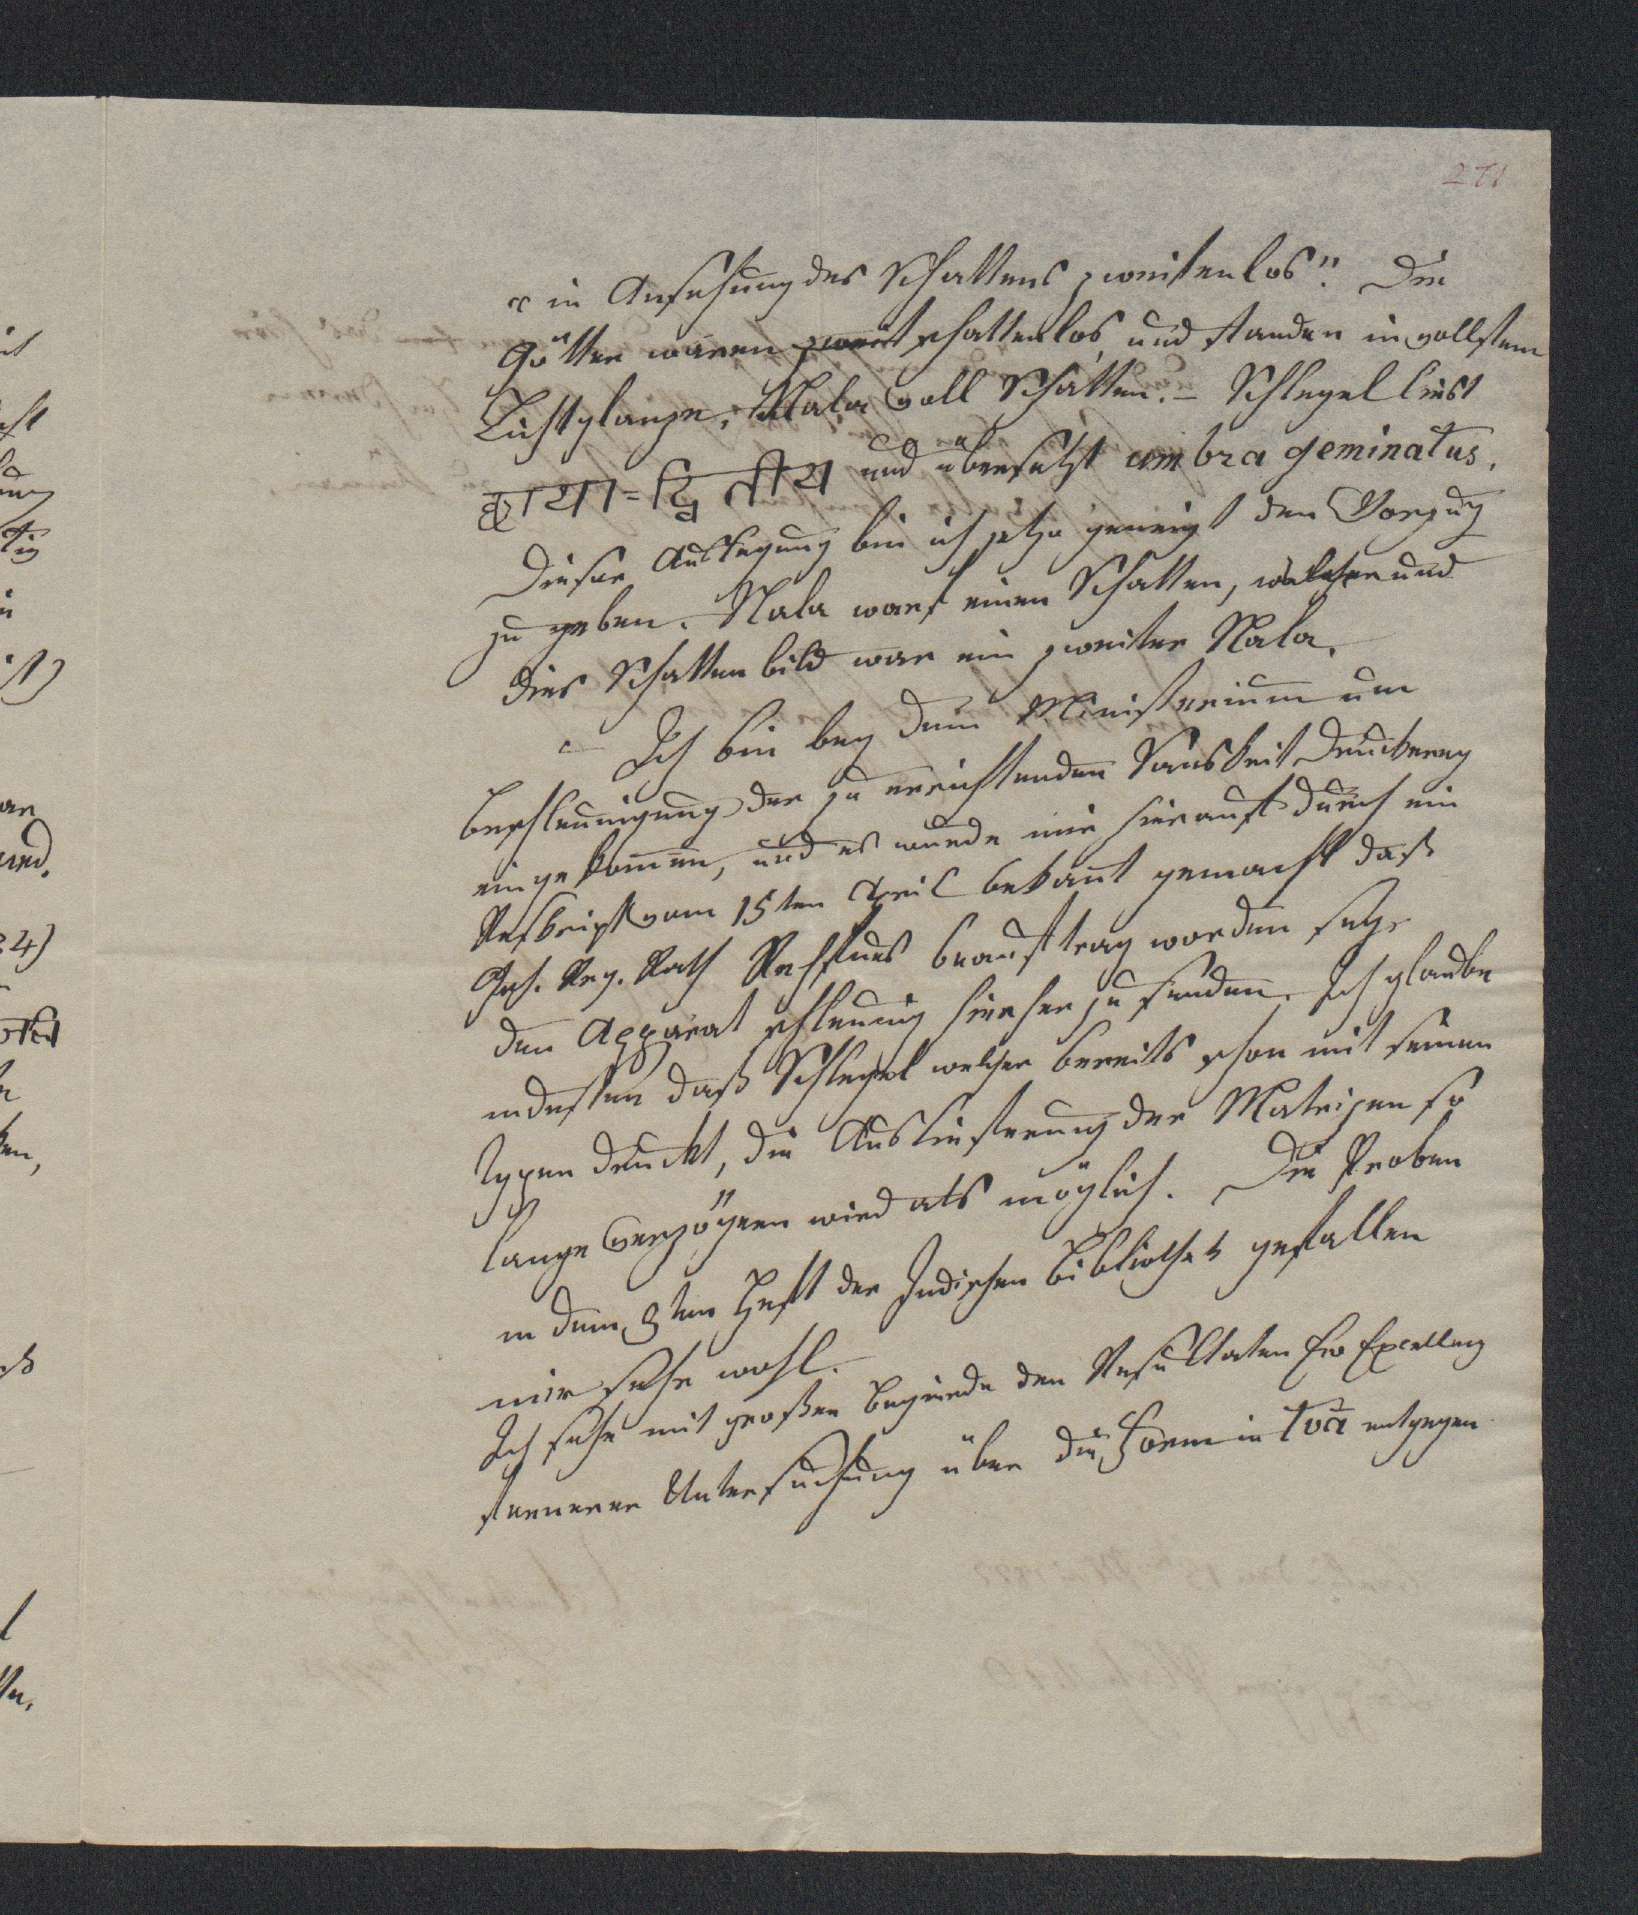 271
„in Ansehung des Schattens zweitenlos". Die
Götter waren zweit schattenlos und standen in vollstem
Lichtglanze, Nala voll Schatten. – Schlegel liest
छाया=द्वितीय und übersetzt umbra geminatus.
Dieser Auslegung bin ich jetzo geneigt den Vorzug
zu geben. Nala warf einen Schatten, welcher und
dies Schattenbild war ein zweiter Nala.
– Ich bin bey dem Ministerium um
Beschleunigung der zu errichtenden Sanskrit Druckerey
eingekommen, und es wurde mir hierauf durch ein
Reskript vom 15ten April bekannt gemacht daß
Geh. Reg. Rath Rehfues beauftrag worden seye
den Apparat schleunig hierher zu senden. Ich glaube
indessen daß Schlegel welcher bereits schon mit seinen
Typen druckt, die Auslieferung der Matrizen so
lange verzögern wird als möglich. Die Proben
in dem 3ten Heft der Indischen Bibliothek gefallen
mir sehr wohl.
Ich sehe mit großer Begierde den Resultaten Ew Excellenz
fernerer Untersuchung über die Form in tvā entgegen